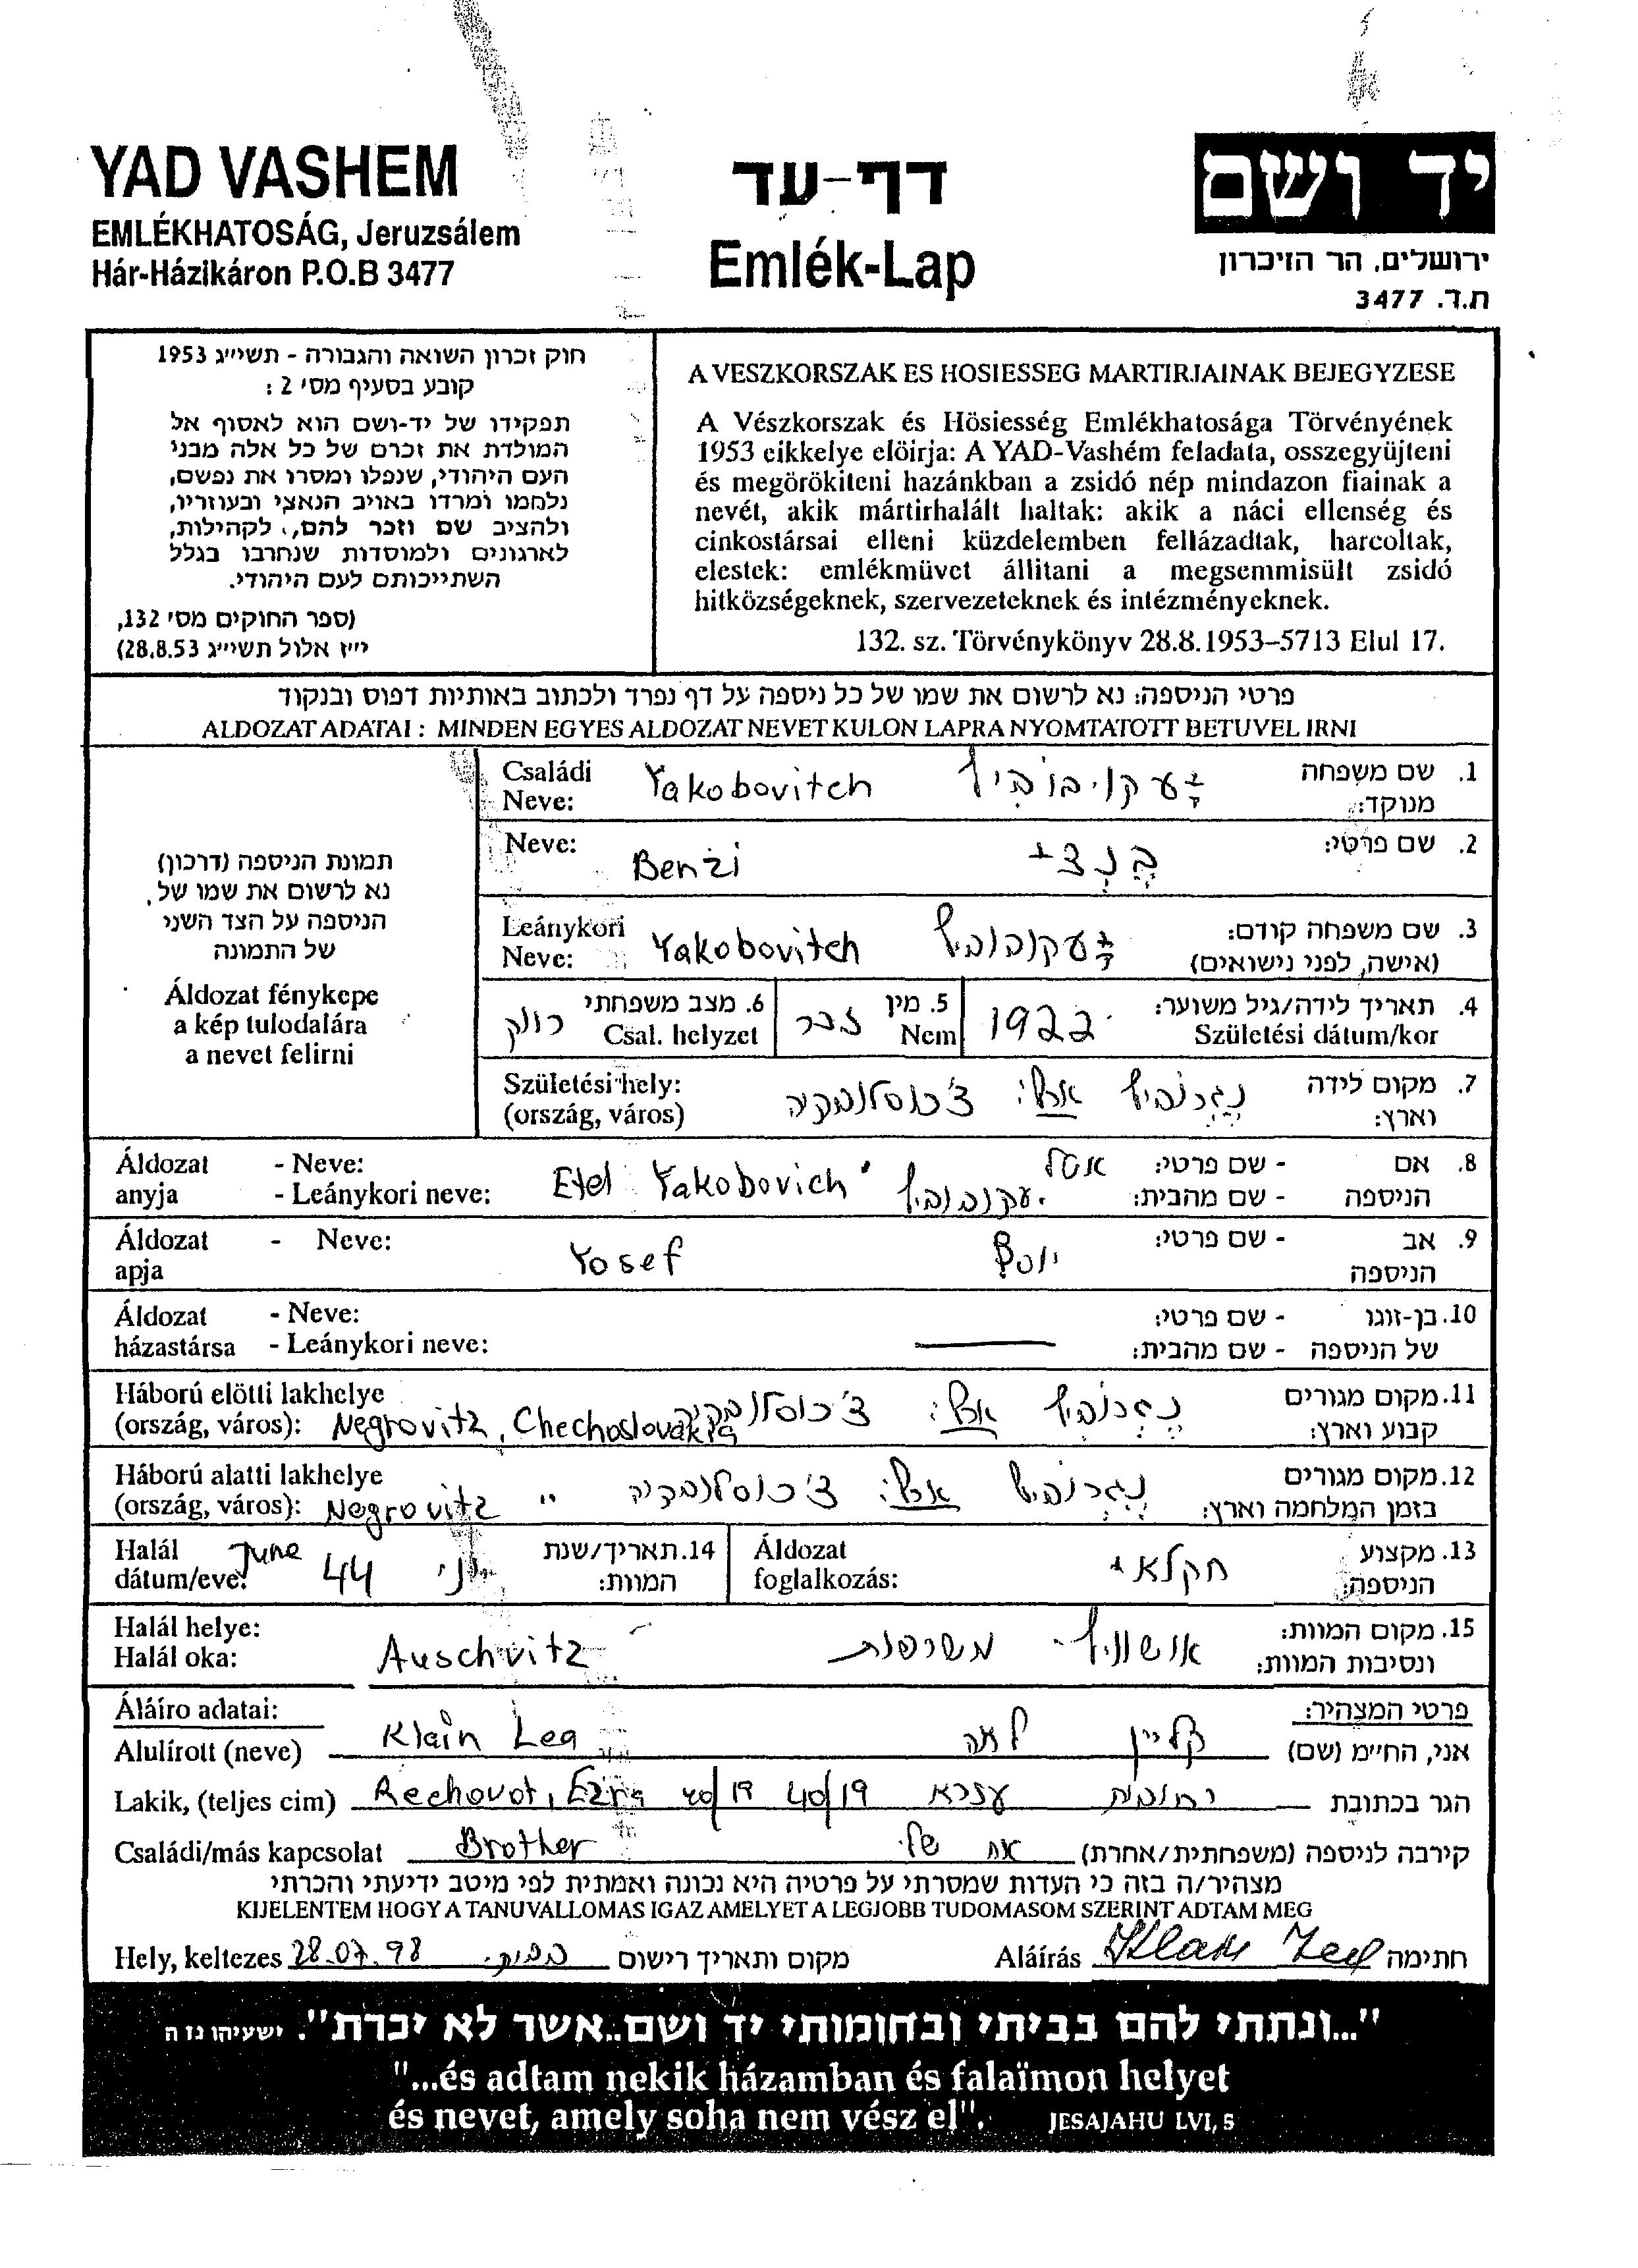 YAD VASHEM
EMLÉKHATOSÁG, Jeruzsálem
Hár-Házikáron P.O.B 3477
דף-עד
Emlék-Lap
יד ושם
ירושלים, הר הזיכרון
ת.ד. 3477
חוק זכרון השואה והגבורה - תשי״ג 1953
קובע בסעיף מס׳ 2 :
תפקידו של יד-ושם הוא לאסוף אל
המולדת את זכרם של כל אלה מבני
העם היהודי, שנפלו ומסרו את נפשם,
נלחמו ומרדו באויב הנאצי ובעוזריו,
ולהציב שם וזכר להם, לקהילות,
לארגונים ולמוסדות שנחרבו בגלל
השתייכותם לעם היהודי.
(ספר החוקים מס׳ 132,
י״ז אלול תשי״ג 28.8.53)
A VESZKORSZAK ES HOSIESSEG MARTIRJAINAK BEJEGYZESE
A Vészkorszak és Hösiesség Emlékhatosága Törvényének
1953 cikkelye elöirja: A YAD-Vashém feladata, osszegyüjteni
és megörökiteni hazánkban a zsidó nép mindazon fiainak a
nevét, akik mártirhalált haltak: akik a náci ellenség és
cinkostársai elleni küzdelemben fellázadtak, harcoltak,
elestek: emlékmüvet állitani a megsemmisült zsidó
hitközségeknek, szervezeteknek és intézményeknek.
132. sz. Törvénykönyv 28.8.1953-5713 Elul 17.
פרטי הניספה: נא לרשום את שמו של כל ניספה על דף נפרד ולכתוב באותיות דפוס ובנקוד
ALDOZAT ADATAI : MINDEN EGYES ALDOZAT NEVET KULON LAPRA NYOMTATOTT BETUVEL IRNI
תמונת הניספה (דרכון)
נא לרשום את שמו של
הניספה על הצד השני
של התמונה
Áldozat fényképe
a kép tulodalára
a nevet felirni
Családi Yakobovitch יעקובוביץ 1. שם משפחה
Neve: מנוקד:
Neve: Benzi בֶּנְצִי 2. שם פרטי:
Leánykori Yakobovitch יעקובוביץ 3. שם משפחה קודם:
Neve: (אישה, לפני נישואים)
4. תאריך לידה/גיל משוער: 1922 5. מין זכר 6. מצב משפחתי רווק
Születési dátum/kor Nem Csal. helyzet
Születési hely: נגרוביץ ארץ: צ׳כוסלובקיה 7. מקום לידה
(ország, város) וארץ:
Áldozat - Neve: אטל - שם פרטי: 8. אם
anyja - Leánykori neve: Etel Yakobovich יעקובוביץ - שם מהבית: הניספה
Áldozat - Neve: Yosef יוסף - שם פרטי: 9. אב
apja הניספה
Áldozat - Neve: - שם פרטי: 10. בן-זוגו
házastársa - Leánykori neve: - שם מהבית: של הניספה
Háború elötti lakhelye נגרוביץ ארץ: צ׳כוסלובקיה 11. מקום מגורים
(ország, város): Negrovitz, Chechoslovakia קבוע וארץ:
Háború alatti lakhelye נגרוביץ ארץ: צ׳כוסלובקיה 12. מקום מגורים
(ország, város): Negrovitz " בזמן המלחמה וארץ:
Halál June 44 יוני 14. תאריך/שנת Áldozat חקלאי 13. מקצוע
dátum/eve: המוות: foglalkozás: הניספה:
Halál helye: Auschvitz אושוויץ - משרפות 15. מקום המוות:
Halál oka: ונסיבות המוות:
Áláíro adatai: פרטי המצהיר:
Alulírott (neve) Klain Lea קליין לאה אני, החי״מ (שם)
Lakik, (teljes cim) Rechovot, Ezra 40/19 40/19 עזרא רחובות הגר בכתובת
Családi/más kapcsolat Brother אח שלי קירבה לניספה (משפחתית/אחרת)
מצהיר/ה בזה כי העדות שמסרתי על פרטיה היא נכונה ואמתית לפי מיטב ידיעתי והכרתי
KIJELENTEM HOGY A TANUVALLOMAS IGAZ AMELYET A LEGJOBB TUDOMASOM SZERINT ADTAM MEG
Hely, keltezes 28.07.98 מקום ותאריך רישום Aláírás חתימה
"...ונתתי להם בביתי ובחומותי יד ושם..אשר לא יכרת". ישעיהו נז ה
"...és adtam nekik házamban és falaïmon helyet
és nevet, amely soha nem vész el". JESAJAHU LVI, 5